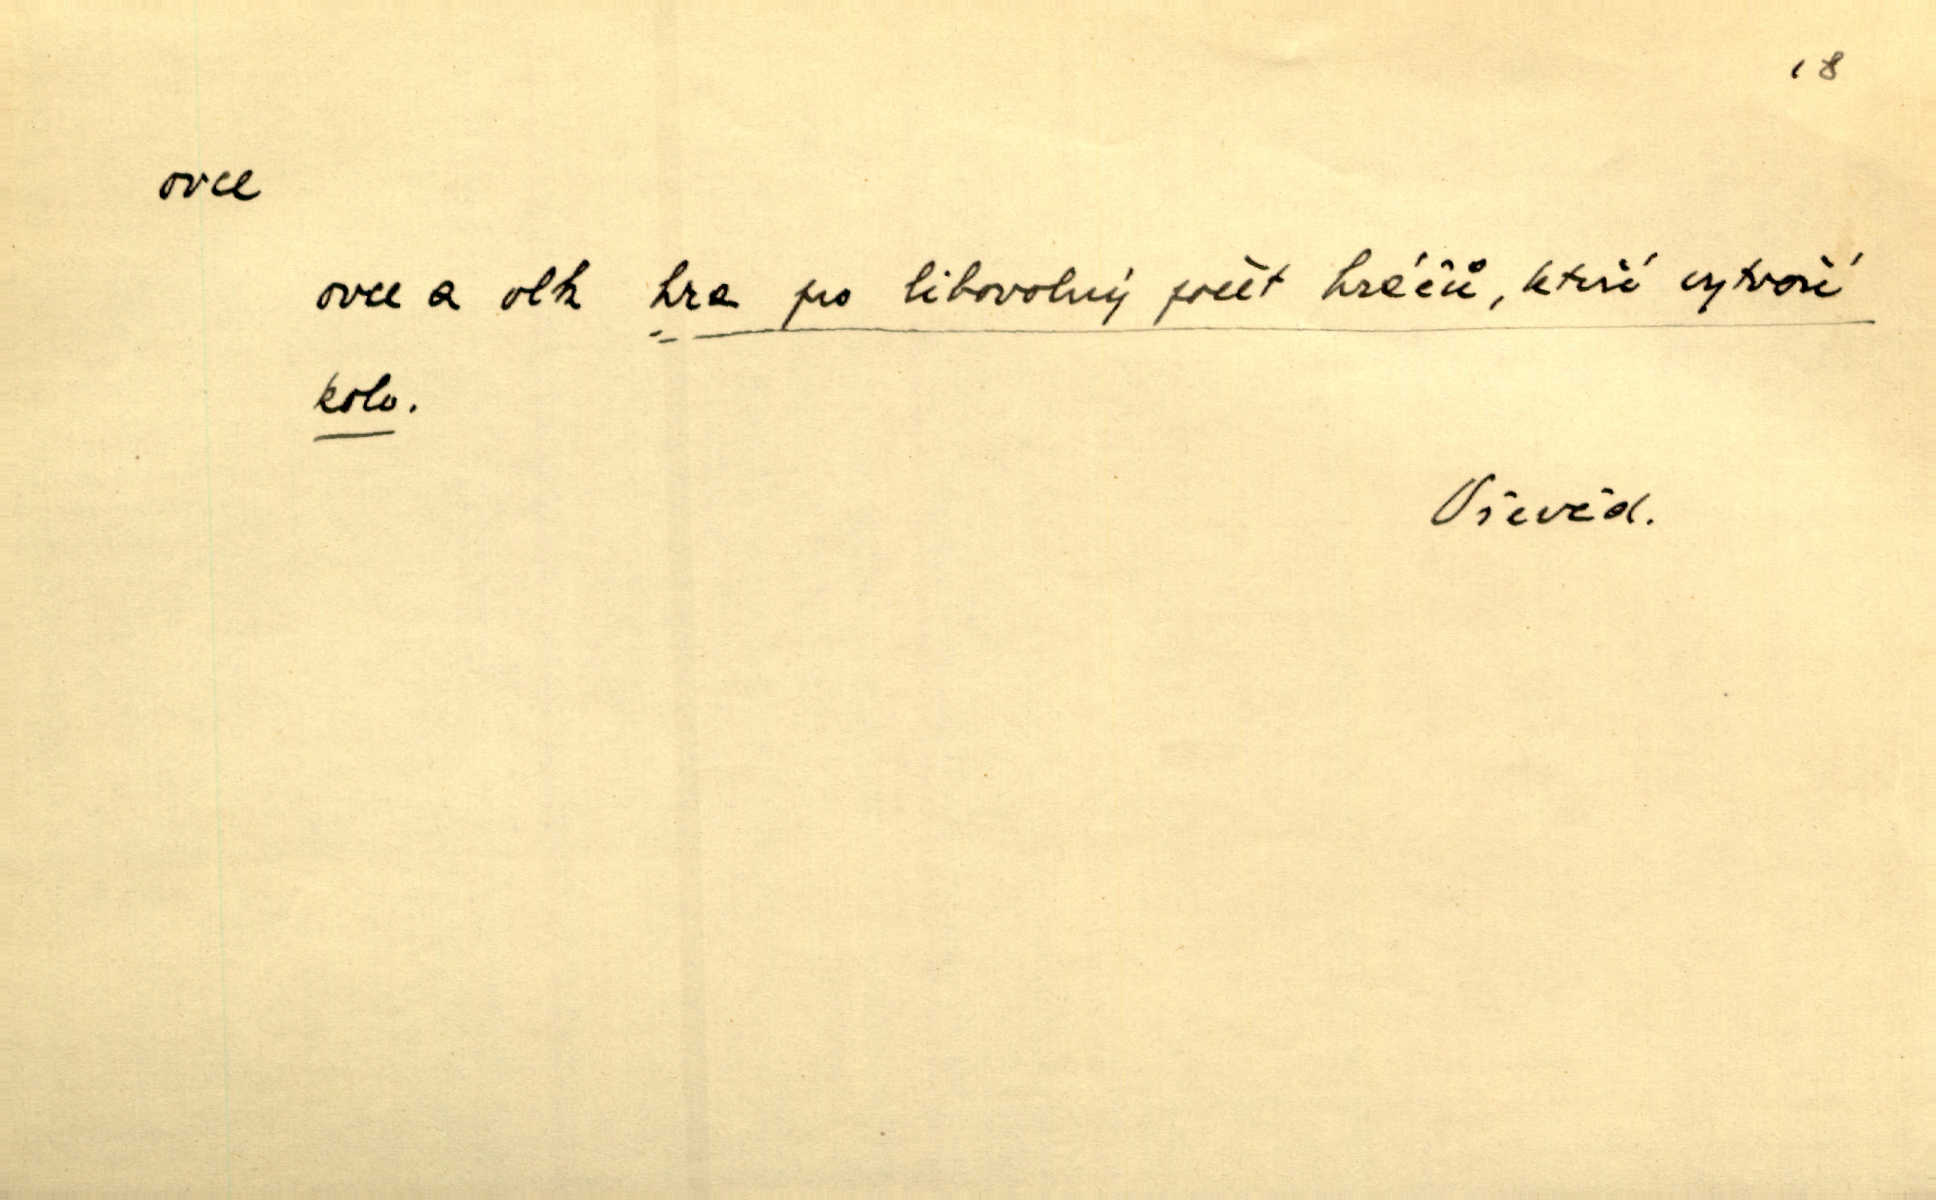 18
ovce
ovce a vlk hra pro libovolný počet hráčů, kteří vytvoří
kolo.
Vševěd.